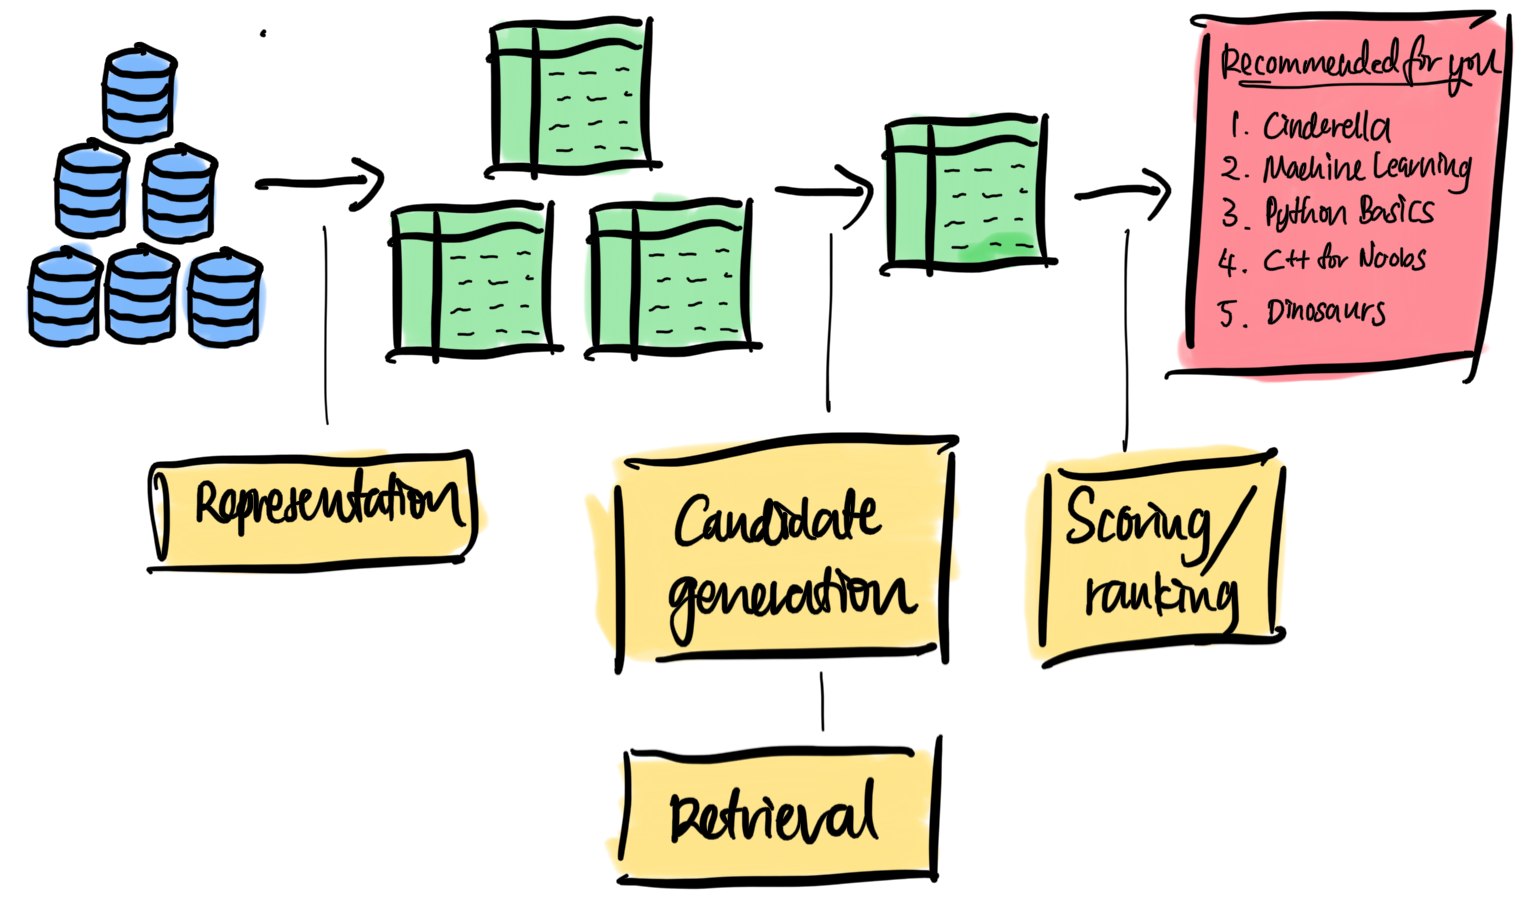 Recommended for you
1. Cinderella
2. Machine Learning
3. Python Basics
4. C++ for Noobs
5. Dinosaurs
Representation
Candidate
generation
Scoring/
ranking
Retrieval